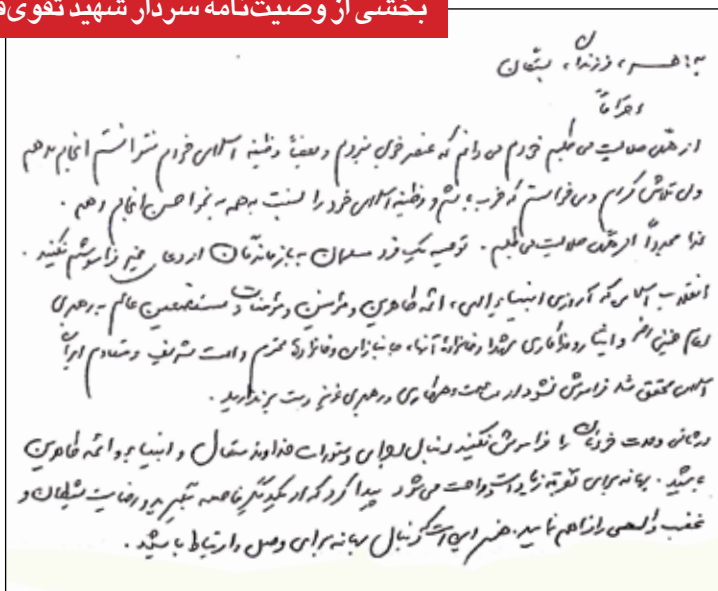 بخشی از وصیت‌نامه سردار شهید تقوی‌ف
به: همسر، فرزندان، بستگان
احتراماً
از همگی حلالیت می طلبم خودم می دانم که عنصر خوبی نبودم و بعضاً وظیفه اسلامی خودم نتوانستم انجام بدهم
ولی تلاش کردم و می خواستم که خوب باشم و وظیفه اسلامی خود را نسبت به همه به نحو احسن انجام دهم.
لذا مجدداً از همگی حلالیت می طلبم. توصیه یک فرد مسلمان به بازماندگان از دعای خیر فراموشم نکنید.
انقلاب اسلامی که آرزوی انبیاء الهی، ائمه طاهرین و مؤمنین و مؤمنات و مستضعفین عالم به رهبری
امام خمینی و ایثار و فداکاری شهدا و خانواده آنها، جانبازان و خانواده محترم و امت شریف و مقاوم ایران
اسلامی محقق شد فراموش نشود از حمایت و رهبری دست برندارید.
در ثانی وحدت خودتان را فراموش نکنید دنبال اجرای دستورات خداوند متعال و انبیاء و ائمه طاهرین
باشید. بهانه برای تفرقه زیاد است و راحت می شود پیدا کرد که از یکدیگر فاصله بگیرید و رضایت شیطان و
غضب الهی را فراهم نمایید. هنر این است که دنبال بهانه برای وصل و ارتباط باشید.